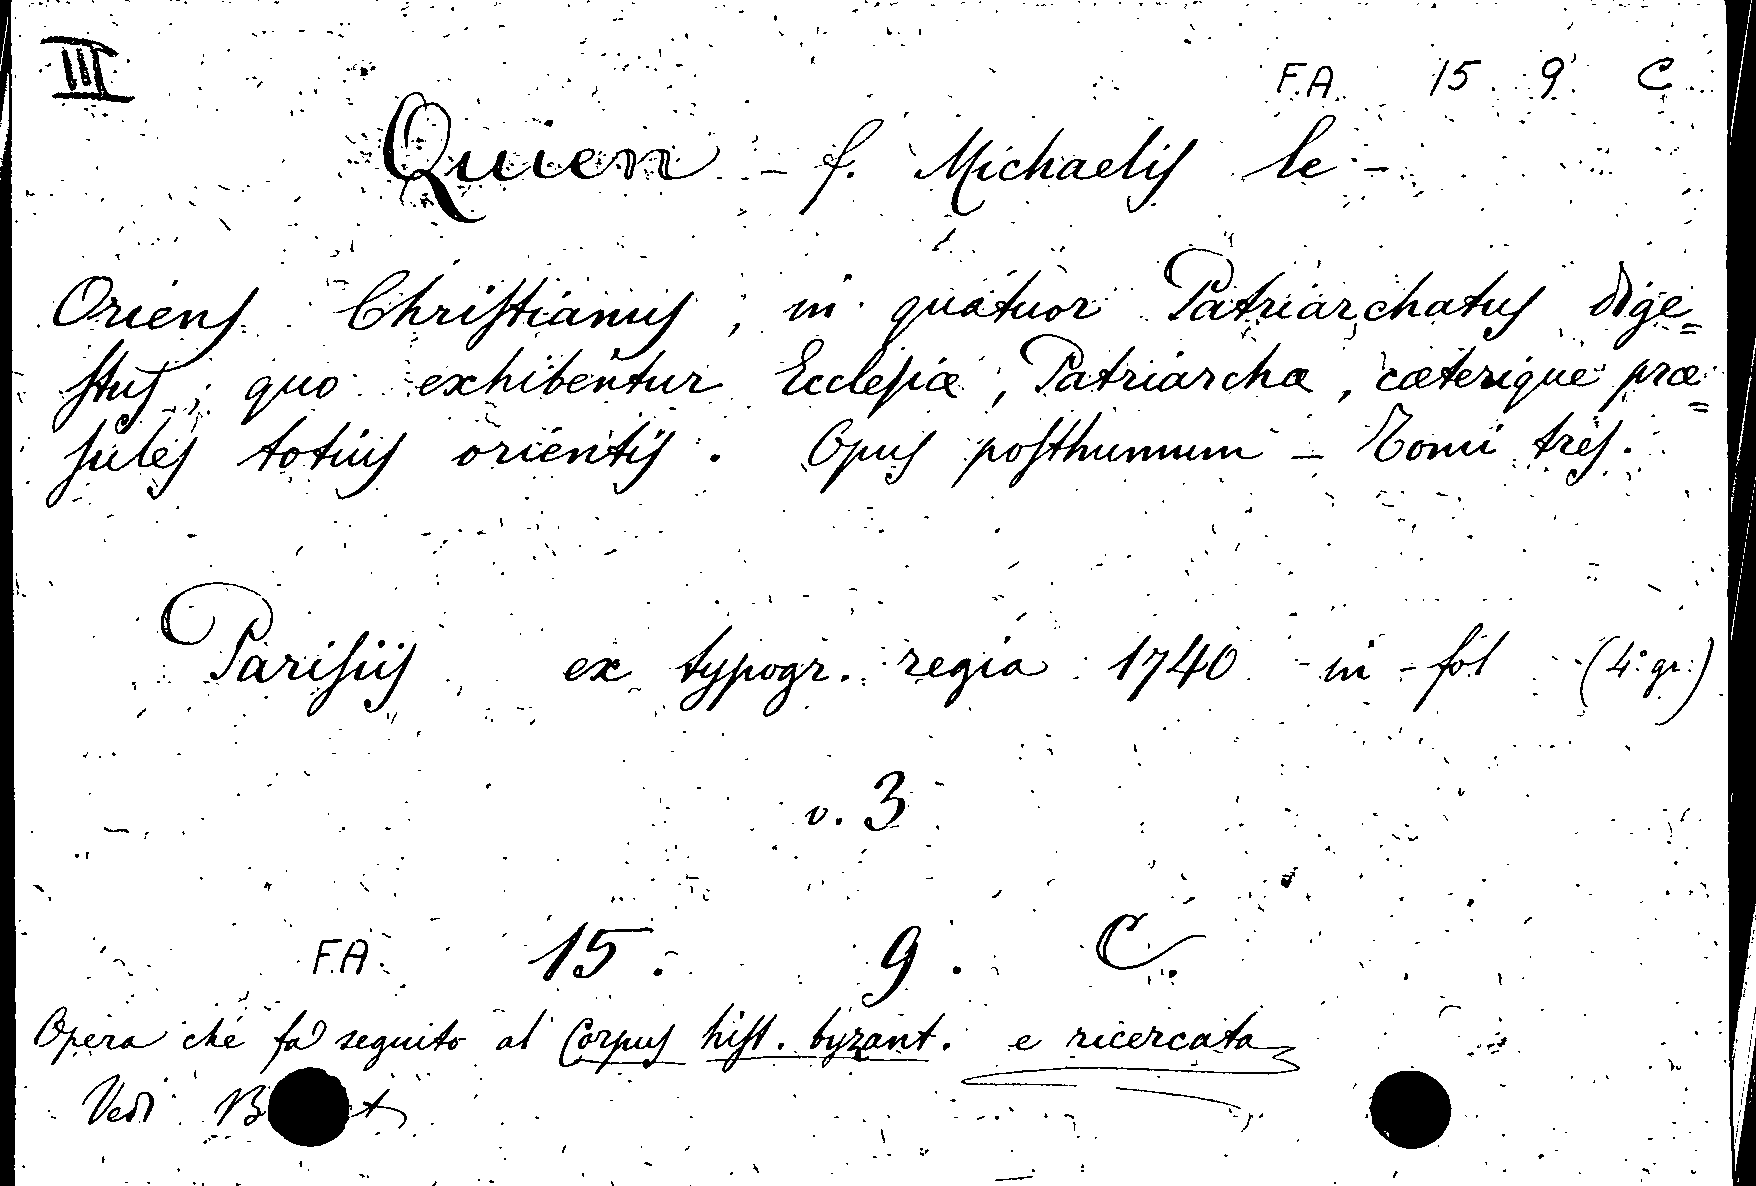 III
F.A. 15. 9. C.
Quien - f. Michaelis le -
Oriens Christianus, in quatuor Patriarchatus dige=
stus; quo exhibentur Ecclesiæ, Patriarchæ, cæterique præ=
sules totius orientis. Opus posthumum - Tomi tres.
Parisiis ex typogr. regia 1740 in-fol (4.° gr.)
v. 3
F.A. 15. 9. C.
Opera che fa seguito al Corpus hist. byzant. e ricercata
Vedi